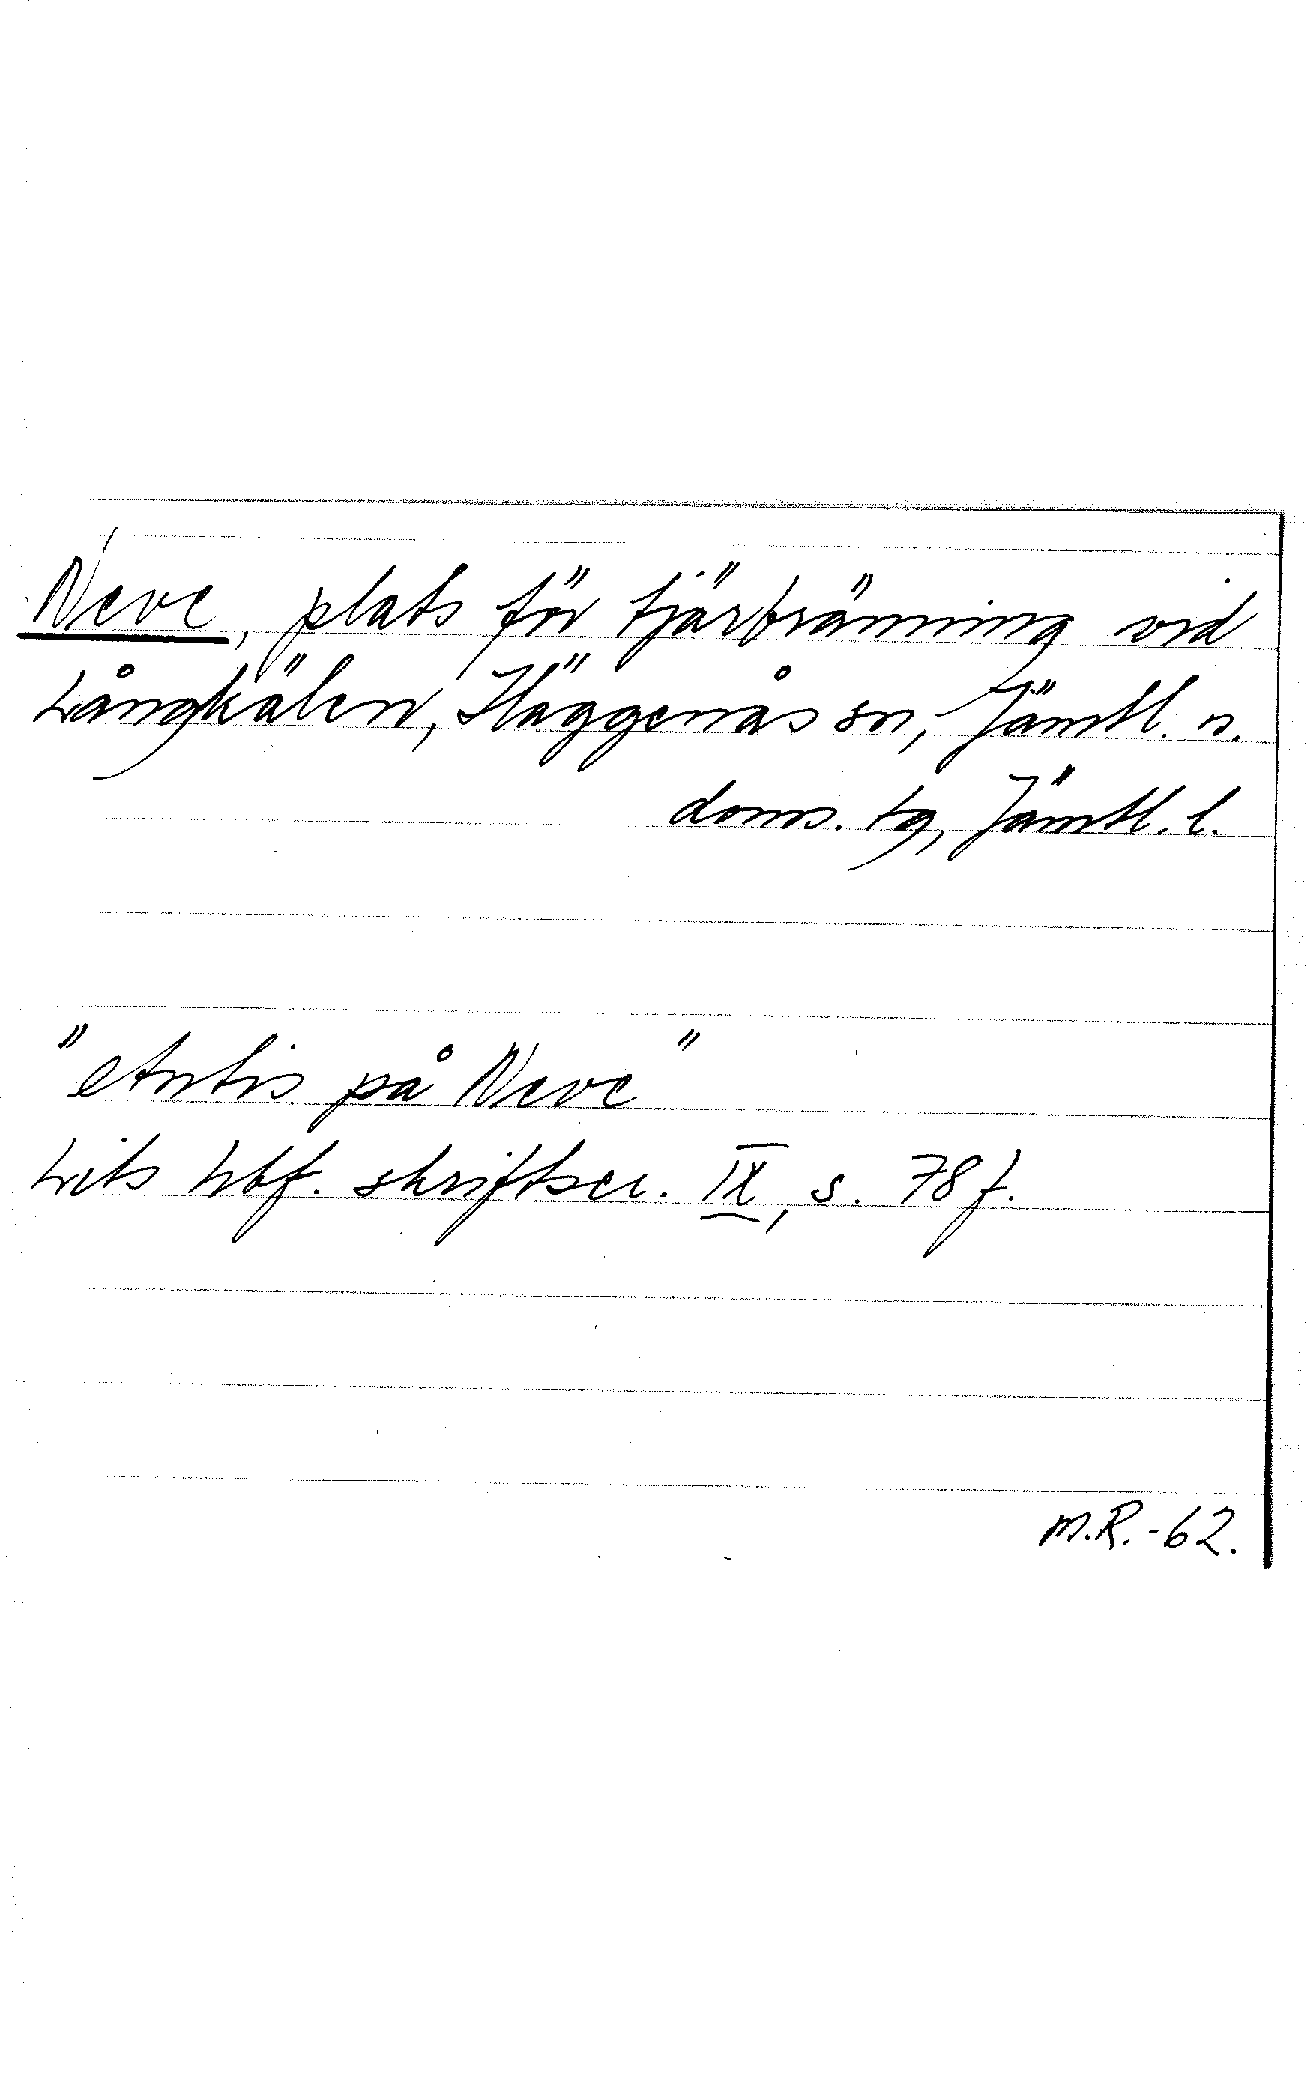 Neve, plats för tjärbränning vid
Långkälen, Häggenås sn, Jämtl. n.
doms. tg, Jämtl. l.
" på Neve"
Lits hbf. skriftser. IX, s. 78 f.
M.R.-62.